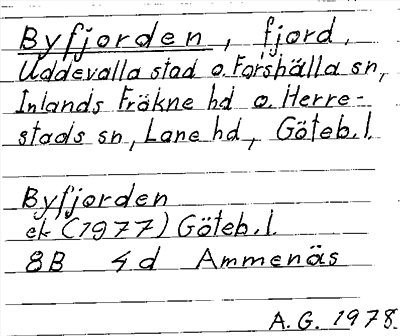 Byfjorden, fjord,
Uddevalla stad o. Forshälla sn,
Inlands Fräkne hd o. Herre-
stads sn, Lane hd, Göteb. l.
Byfjorden
ek (1977) Göteb. l.
8B 4d Ammenäs
A.G. 1978.